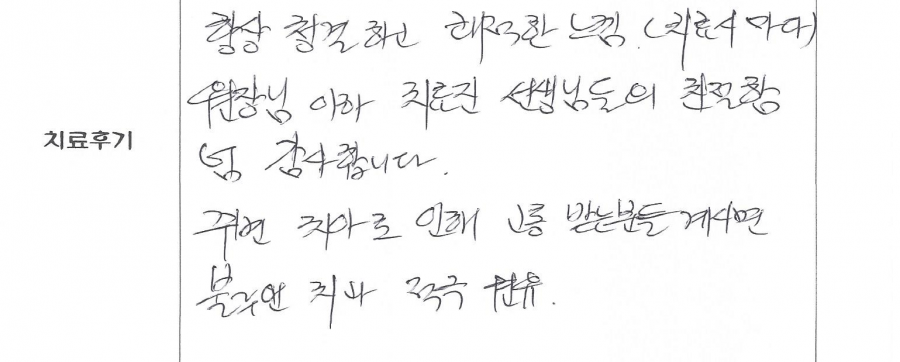 항상 청결하고 쾌적한 느낌. (치료시 마다)
원장님 이하 치료진 선생님들의 친절함
치료후기
넘 감사합니다.
주변 치아로 인해 고통 받는분들 계시면
불주안 치과 적극 권유.